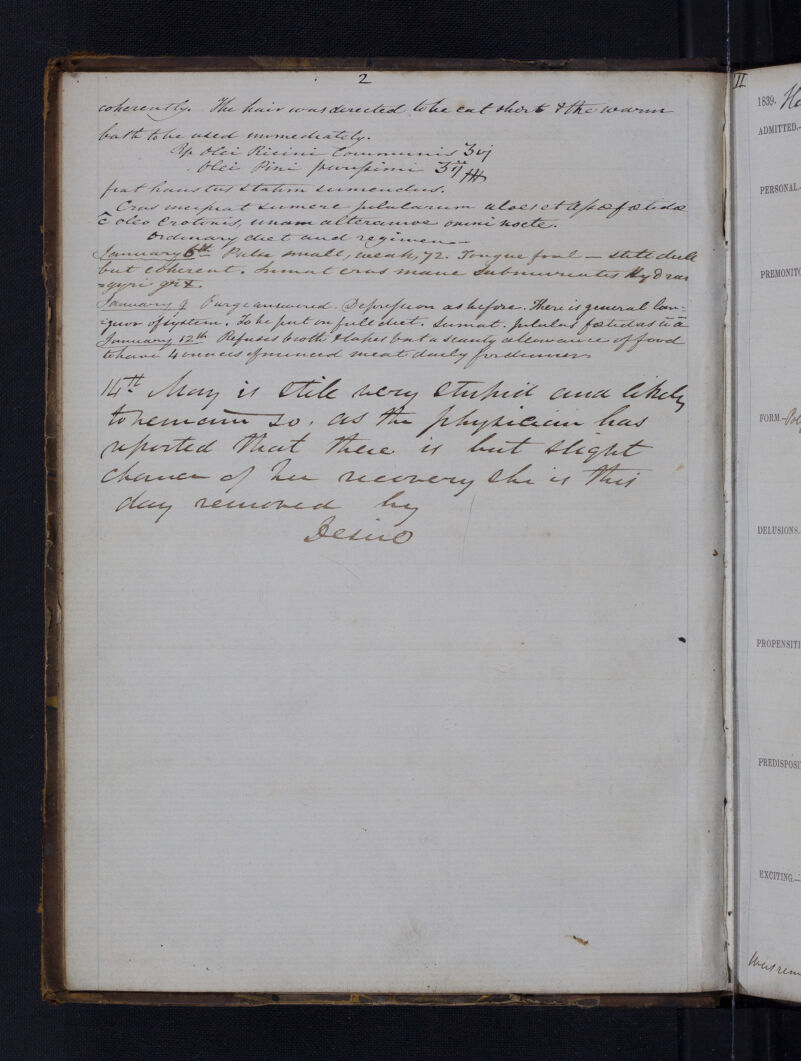 2
coherently. The hair was directed to be cut short & the warm
bath to be used immediately.
Rp Olei Ricini Communis ʒvj
Olei Pini purissimi ʒij
fiat haustus statim sumendus.
Cras incipiat sumere pilularum aloes et assæfœtidæ
c̄ oleo Crotonis, unam alteramve omni nocte.
Ordinary diet and regimen
January 6th Pulse small, weak, 72. Tongue foul – still dull
but coherent. Sumat cras mane Submuriatis Hydrar
=gyri grx
January 9 Purge answered. Depression as before. There is general lan=
=guor of system. To be put on full diet. Sumat. pilulas fœtidas
January 12th Refuses broth & takes but a scanty allowance of food
to have 4 ounces of minced meat daily for dinner
14th May is still very stupid and likely
to remain so. as the physician has
reported that there is but slight
chance of her recovery she is this
day removed by
Desire
II
1839.
ADMITTED.
PERSONAL.
PREMONITO
FORM.
DELUSIONS.
PROPENSITI
PREDISPOSI
EXCITING.—
Was rem